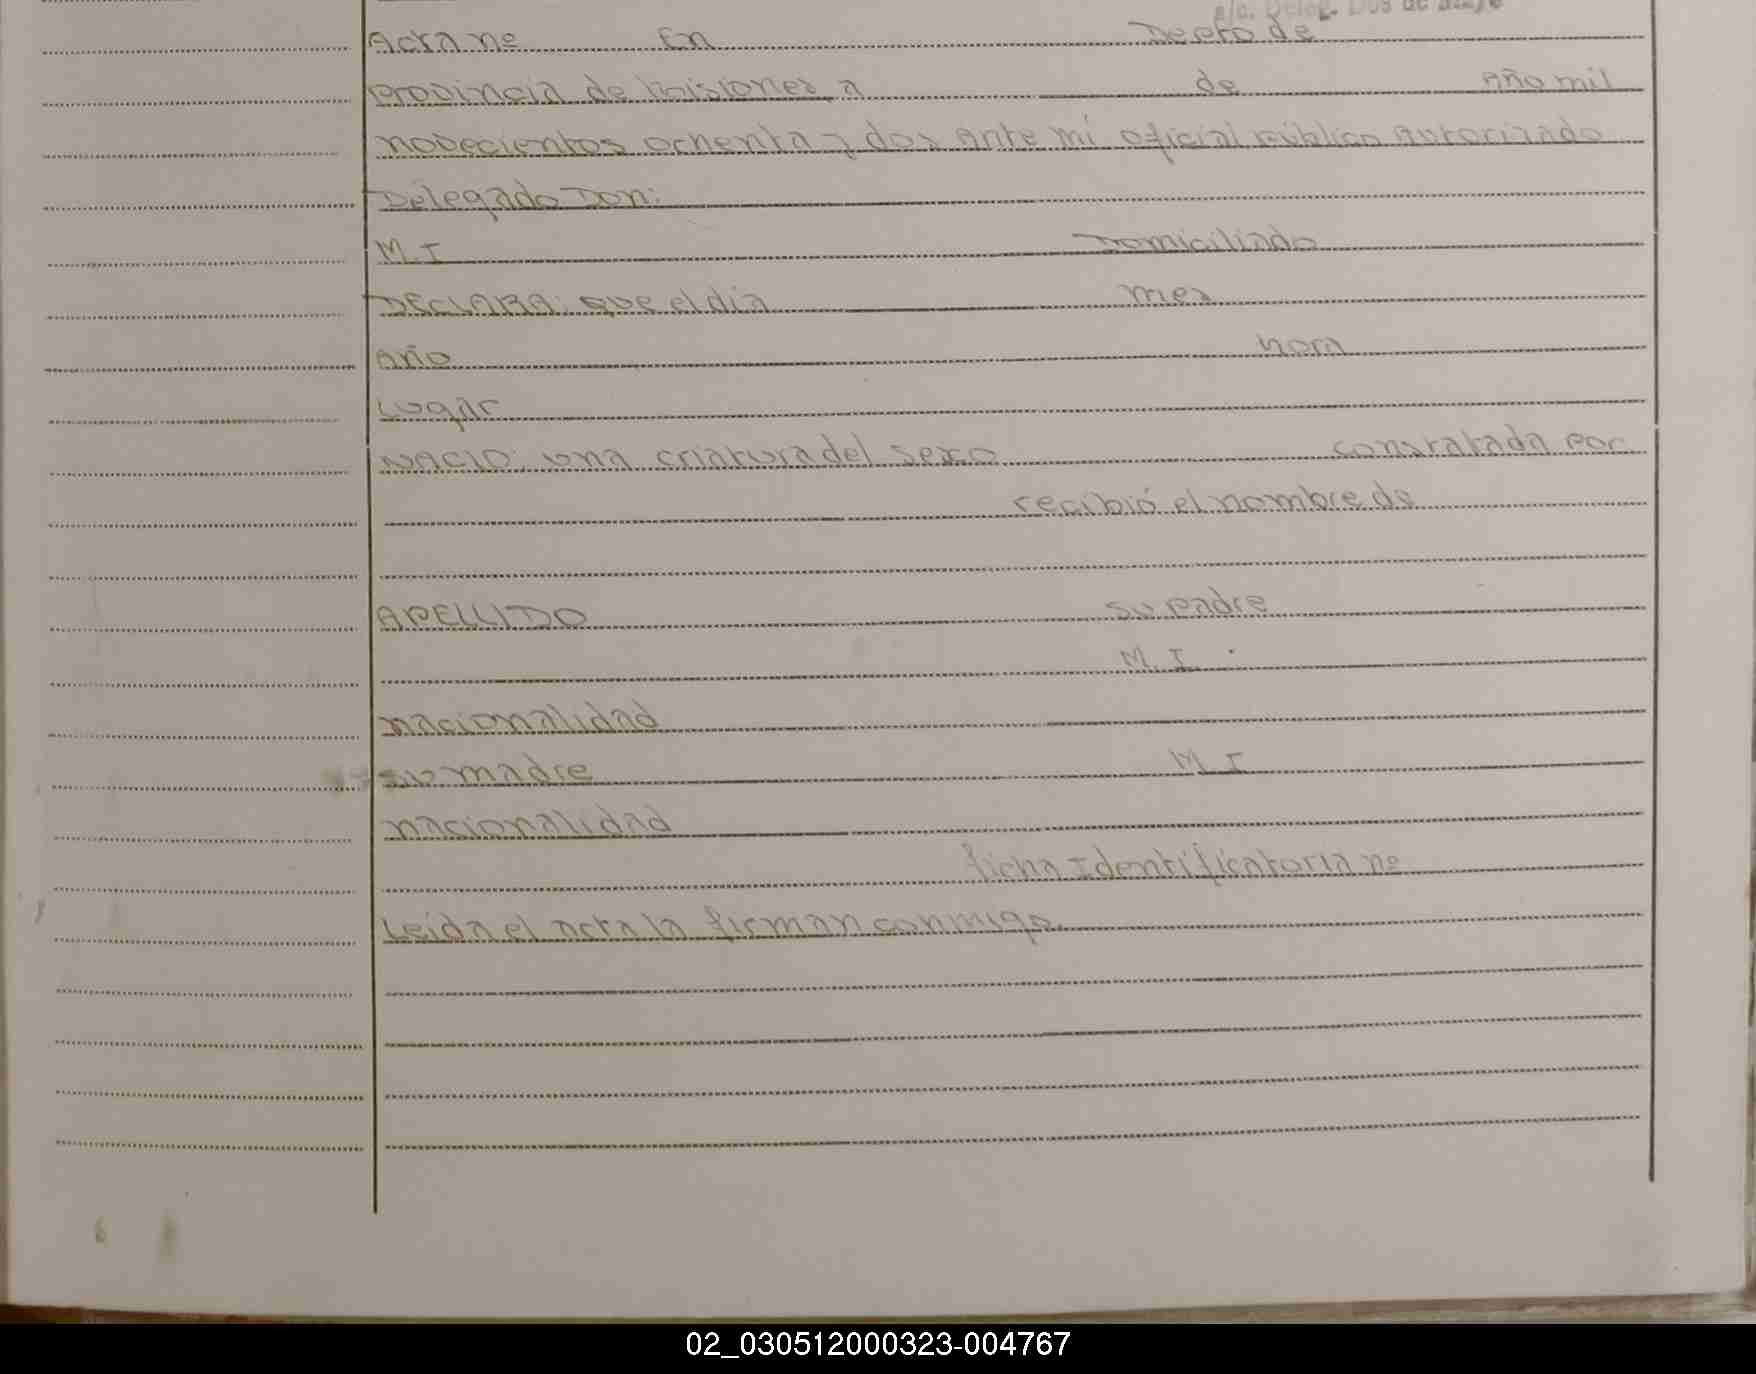 a/c. Deleg. Dos de Mayo
Acta nº En Depto de
provincia de Misiones, a de Año mil
novecientos ochenta y dos ante mi oficial público autorizado
Delegado Don:
M. I Domiciliado
DECLARA: que el día mes
Año hora
Lugar
NACIO: una criatura del sexo constatada por
recibió el nombre de
APELLIDO su padre
M. I.
nacionalidad
su madre M. I
nacionalidad
ficha Identificatoria nº
Leida el acta la firman conmigo.
02_030512000323-004767